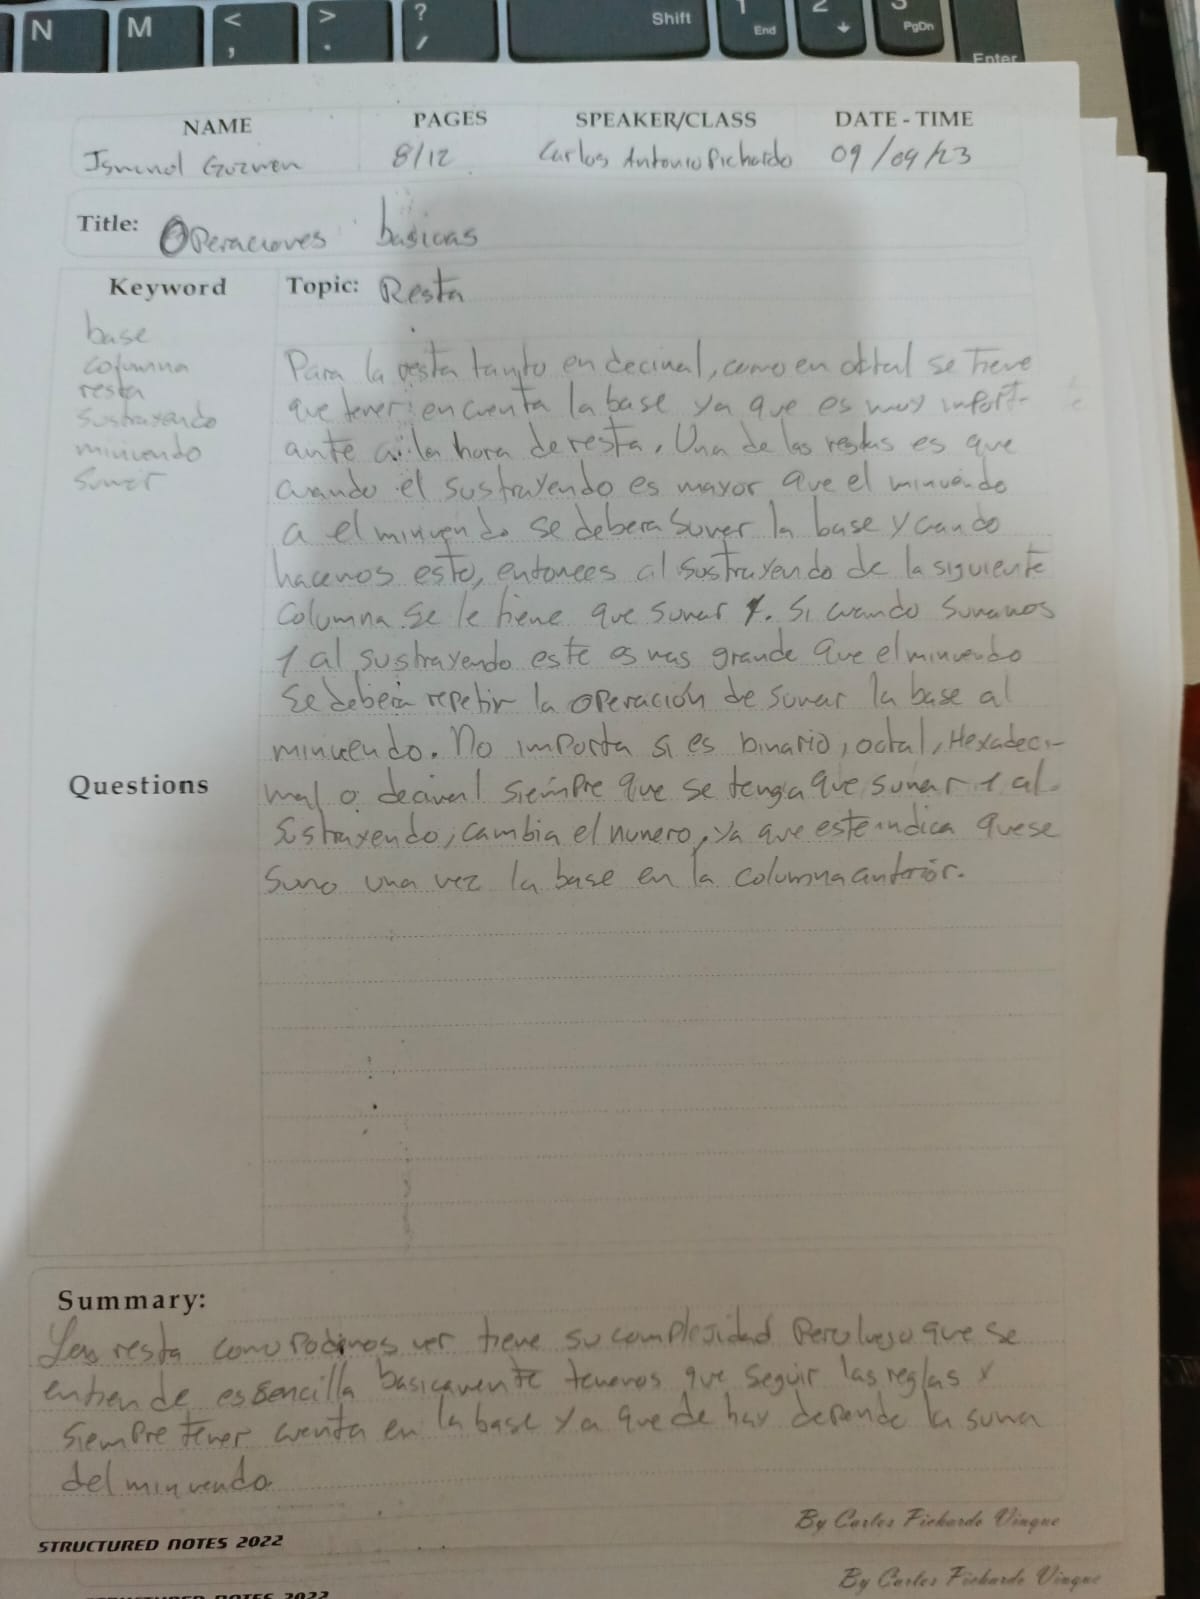 N M < , > . ? / Shift 1 End 2 3 PgDn Enter
NAME PAGES SPEAKER/CLASS DATE - TIME
Ismenol Guzmen 8/12 Carlos Antonio Pichardo 09/09/23
Title: Operaciones basicas
Keyword Topic: Resta
base
columna
resta
sustrayendo
minuendo
sumar
Para la resta tanto en decimal, como en octal se tiene
que tener en cuenta la base ya que es muy import-
ante a la hora de resta. Una de las reglas es que
cuando el sustrayendo es mayor que el minuendo
a el minuendo se debera sumar la base y cando
hacemos esto, entonces al sustrayendo de la siguiente
columna se le tiene que sumar 1. Si cuando sumamos
1 al sustrayendo este es mas grande que el minuendo
se debera repetir la operación de sumar la base al
minuendo. No importa si es binario, octal, Hexadeci-
mal o decimal siempre que se tenga que sumar 1 al
sustrayendo, cambia el numero, ya que este indica que se
sumo una vez la base en la columna anterior.
Questions
Summary:
resta como podemos ver tiene su complejidad pero luego que se
entiende es sencilla basicamente tenemos que seguir las reglas y
siempre tener cuenta en la base ya que de hay depende la suma
del minuendo.
By Carlos Pichardo Vinque
STRUCTURED NOTES 2022
By Carlos Pichardo Vinque
STRUCTURED NOTES 2022